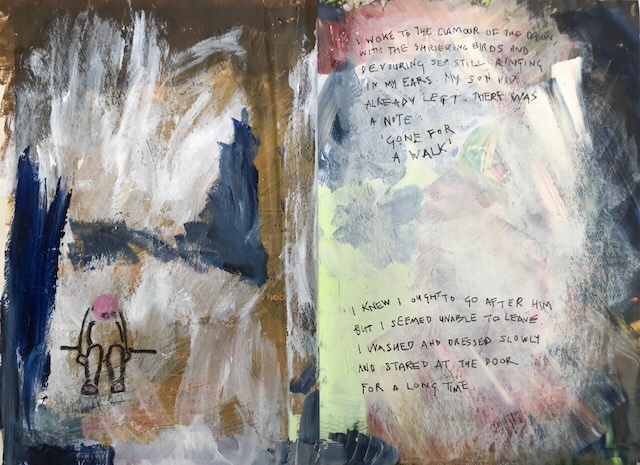 I WOKE TO THE CLAMOUR OF THE DAWN
WITH THE SHRIEKING BIRDS AND
DEVOURING SEA STILL RINGING
IN MY EARS. MY SON HAD
ALREADY LEFT. THERE WAS
A NOTE:
'GONE FOR
A WALK'
I KNEW I OUGHT TO GO AFTER HIM
BUT I SEEMED UNABLE TO LEAVE.
I WASHED AND DRESSED SLOWLY
AND STARED AT THE DOOR
FOR A LONG TIME